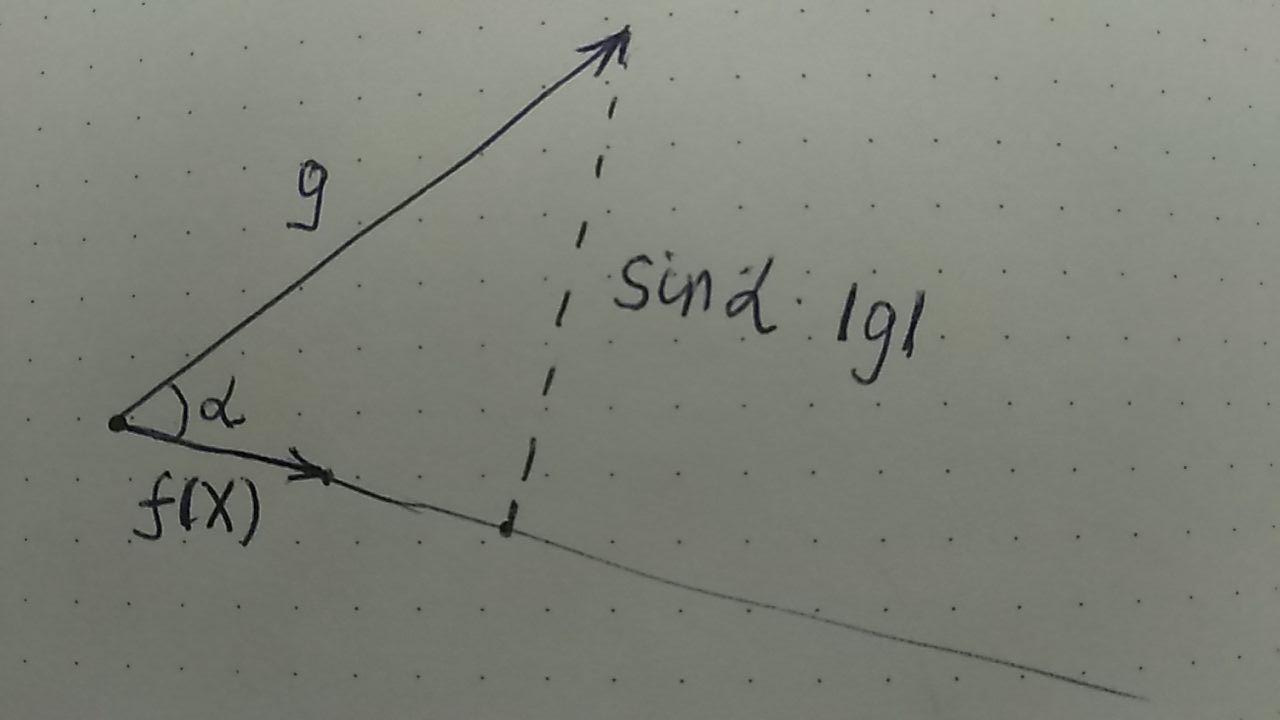 g
sinα · |g|
α
f(x)